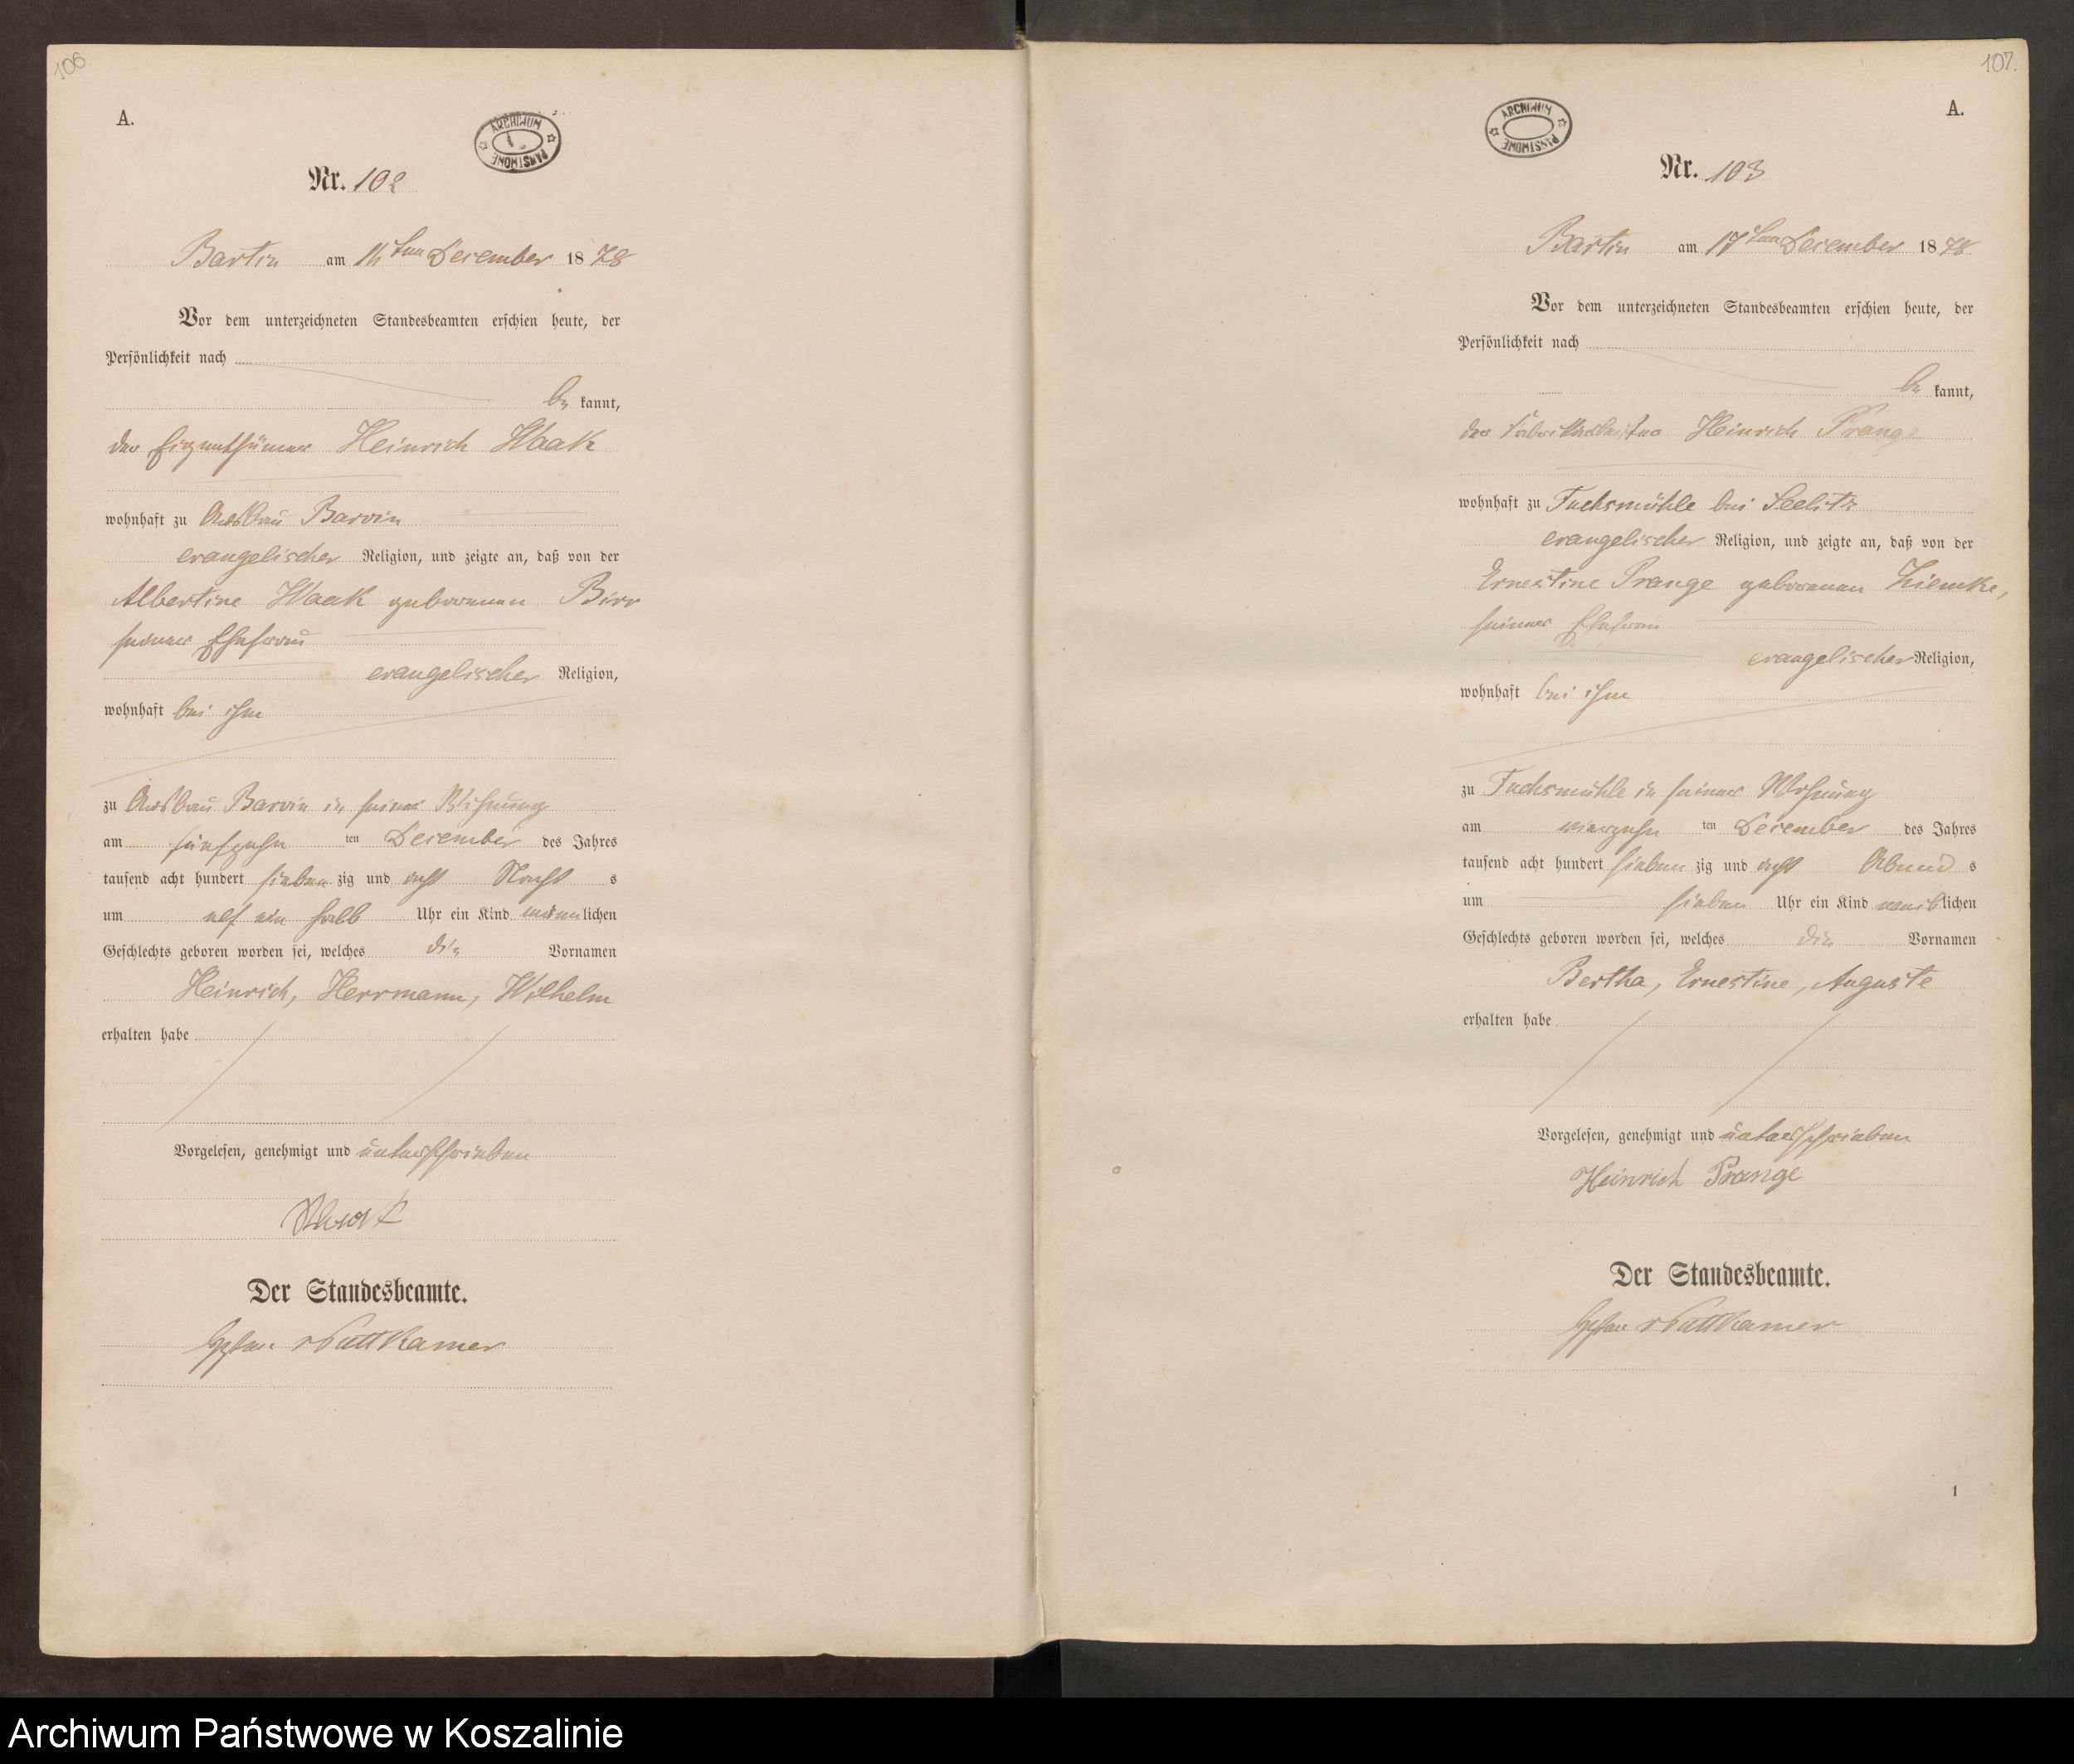 106.
A.
ARCHIWUM PAŃSTWOWE
Nr. 102
Bartin am ten December 1878
Vor dem unterzeichneten Standesbeamten erschien heute, der
Persönlichkeit nach
be kannt,
der Eigenthümer Heinrich Waak
wohnhaft zu Ausbau Barvin
evangelischer Religion, und zeigte an, daß von der
Albertine Waak geborenen Birr
seiner Ehefrau
evangelischer Religion,
wohnhaft bei ihm
zu Ausbau Barvin in seiner Wohnung
am fünfzehn ten December des Jahres
tausend acht hundert sieben zig und acht Nacht s
um elf ein halb Uhr ein Kind männlichen
Geschlechts geboren worden sei, welches die Vornamen
Heinrich, Herrmann, Wilhelm
erhalten habe
Vorgelesen, genehmigt und unterschrieben
Der Standesbeamte.
Puttkamer
107.
A.
ARCHIWUM PAŃSTWOWE
Nr. 103
Bartin am 17ten December 1878
Vor dem unterzeichneten Standesbeamten erschien heute, der
Persönlichkeit nach
be kannt,
der Heinrich Prange
wohnhaft zu Fuchsmühle bei Seelitz
evangelischer Religion, und zeigte an, daß von der
Ernestine Prange geborenen Ziemke,
seiner Ehefrau
evangelischer Religion,
wohnhaft bei ihm
zu Fuchsmühle in seiner Wohnung
am vierzehn ten December des Jahres
tausend acht hundert sieben zig und acht Abend s
um sieben Uhr ein Kind weiblichen
Geschlechts geboren worden sei, welches die Vornamen
Bertha, Ernestine, Auguste
erhalten habe
Vorgelesen, genehmigt und unterschrieben
Heinrich Prange
Der Standesbeamte.
Puttkamer
1
Archiwum Państwowe w Koszalinie